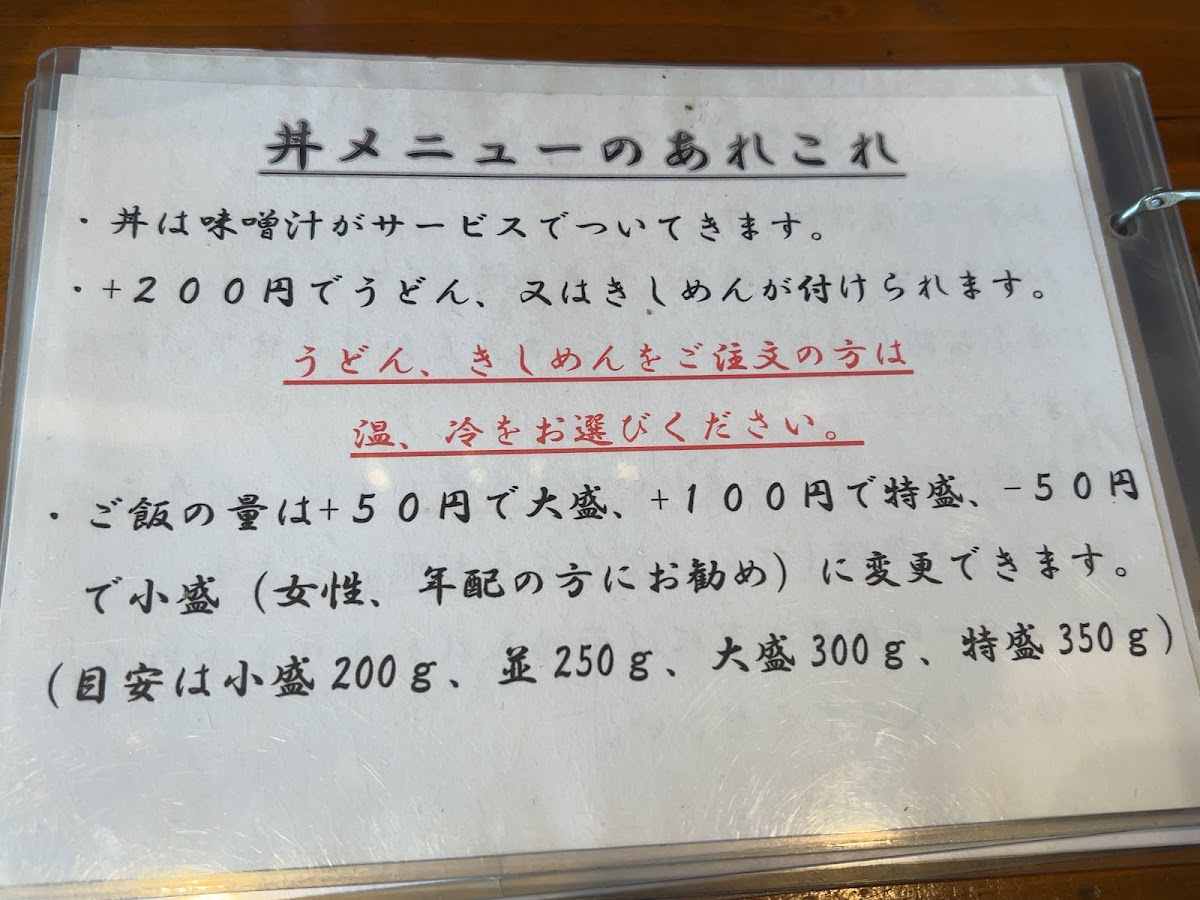 丼メニューのあれこれ
・丼は味噌汁がサービスでついてきます。
・+２００円でうどん、又はきしめんが付けられます。
うどん、きしめんをご注文の方は
温、冷をお選びください。
・ご飯の量は+５０円で大盛、+１００円で特盛、-５０円
で小盛（女性、年配の方にお勧め）に変更できます。
（目安は小盛200ｇ、並250ｇ、大盛300ｇ、特盛350ｇ）